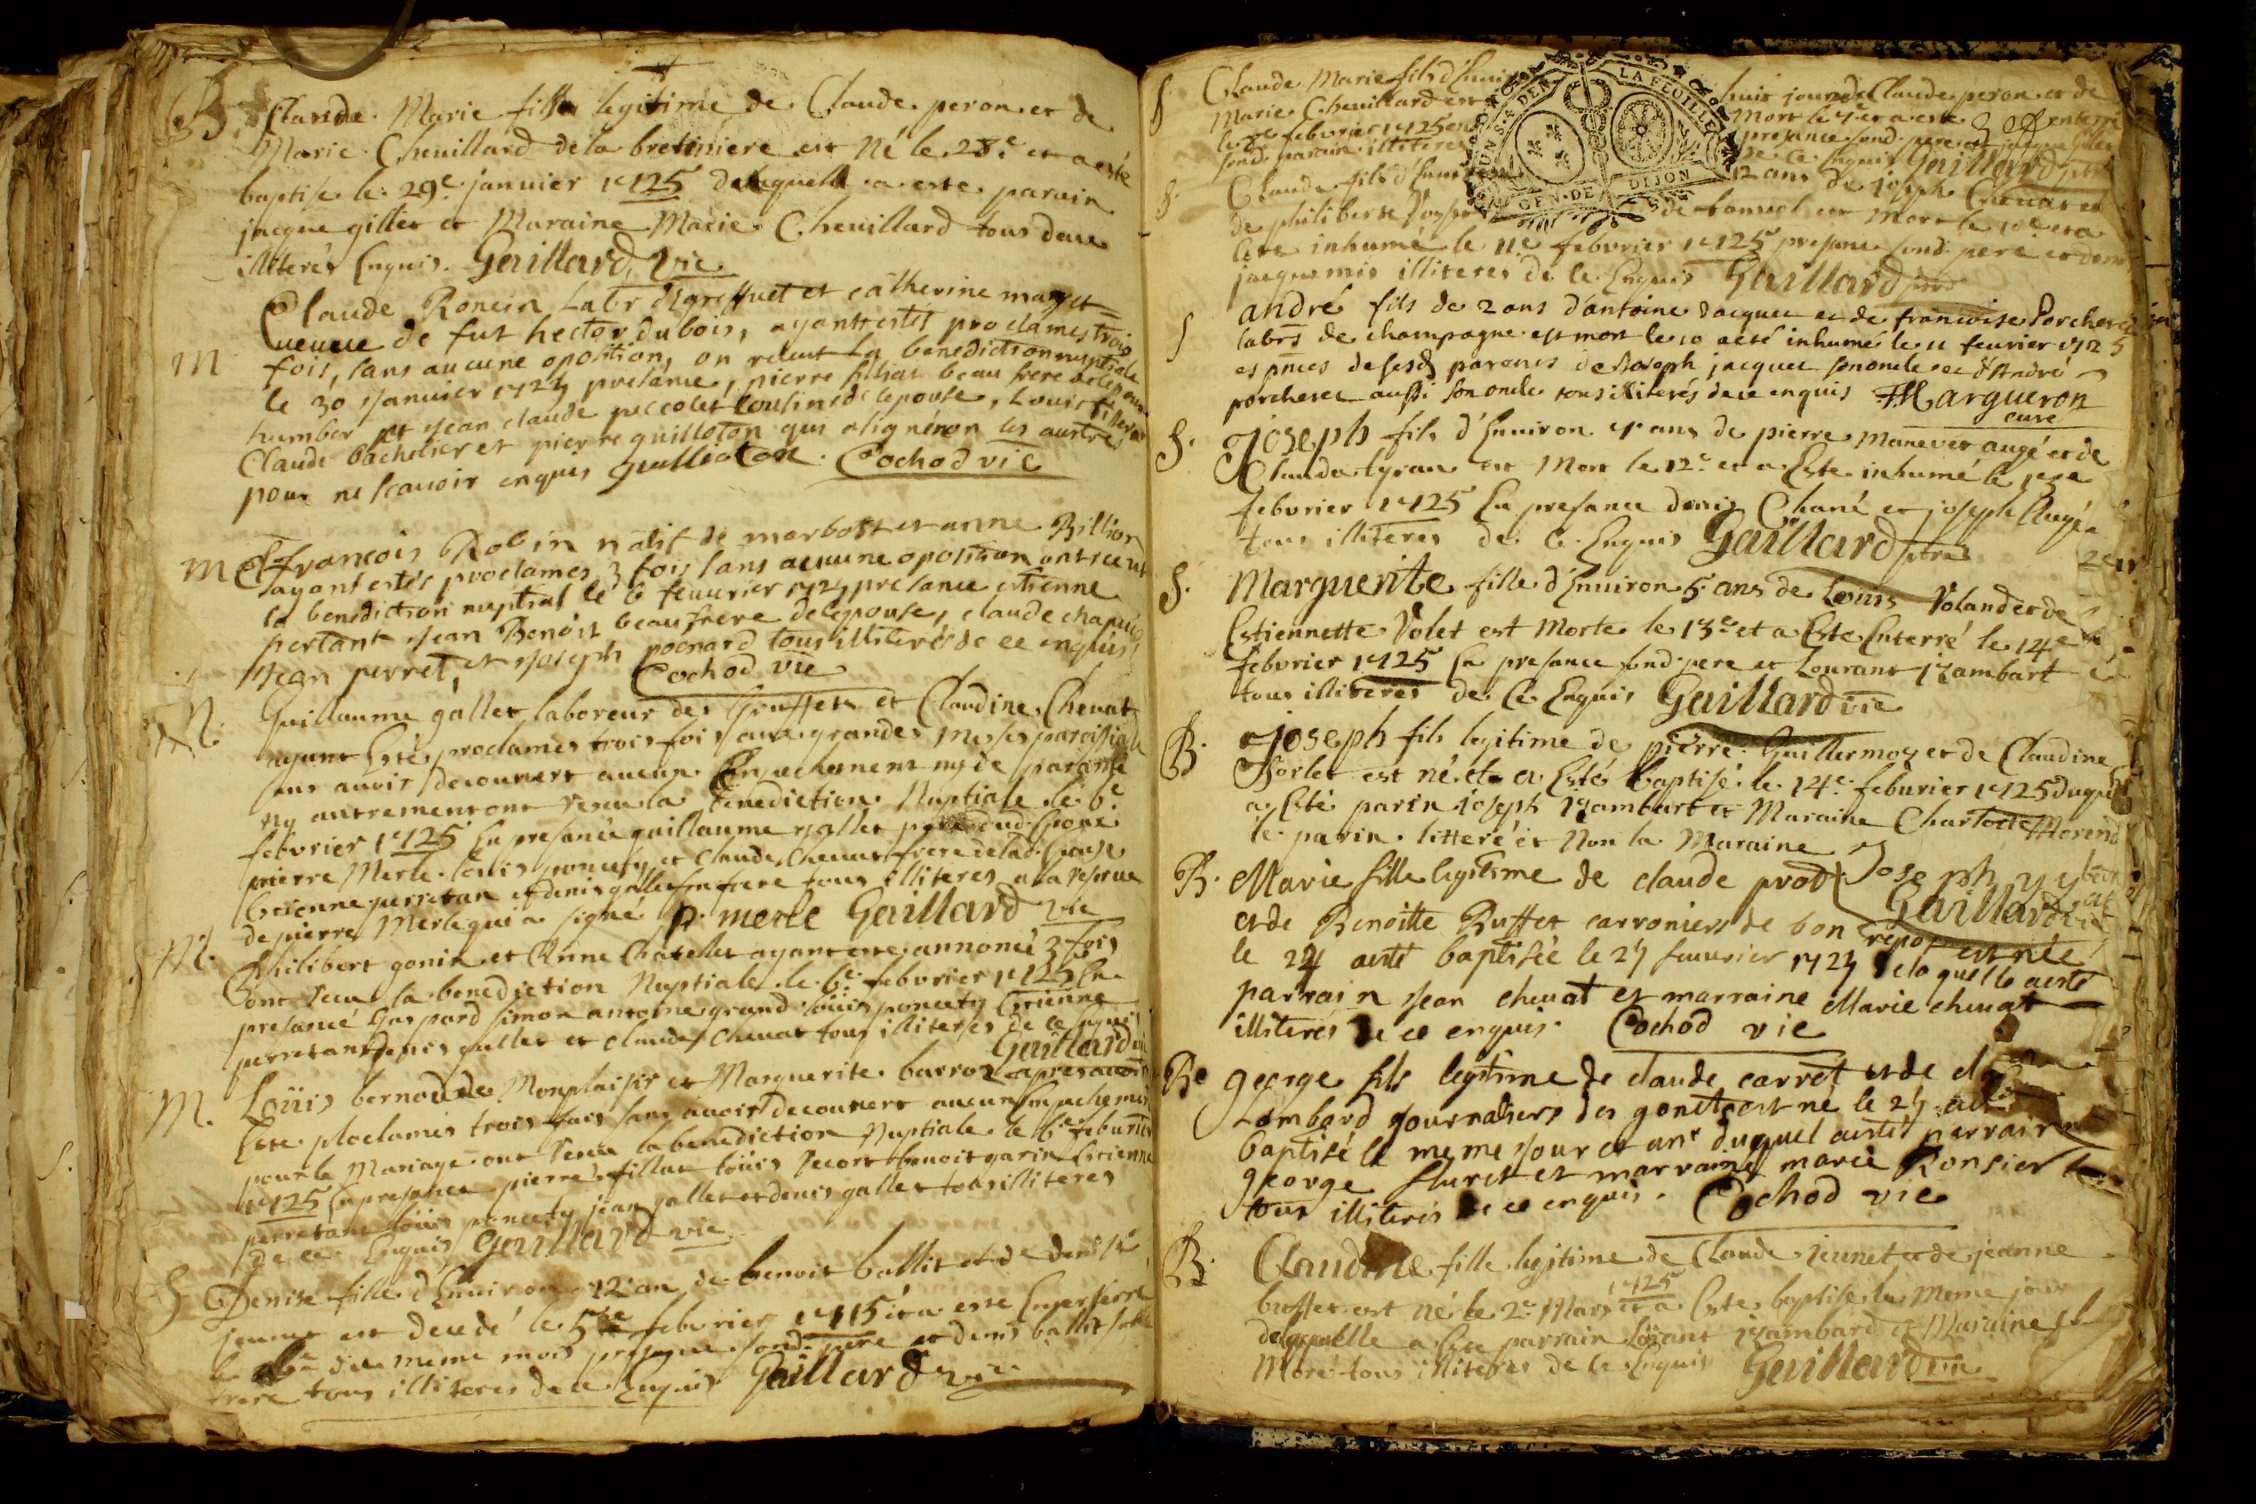 B. Claude Marie fille legitime de Claude peron et de
Marie Cheuillard de la bretiniere est Né le 28e et a esté
baptise le 29e janvier 1725 de laquelle a este parain
jacque gillet et Maraine Marie Cheuillard tous deux
illiterés Enquis. Gaillard vic
Claude Roncin Labr et catherine
veuve de fut hector du bois, ayants estés proclames trois
M fois, sans aucune oposition, on reçeut la benediction nuptiale
le 30 janvier 1725 presance, pierre fillat beau frere de
humber et jean claude peccolet cousins de lepouse, Louis
Claude bachelier et pierre guilloton qui a signé non les austre
pour ne scavoir enquis guilloton. Cochod vic
M françois Robin natif de marbost et anne Billion
ayant estés proclames 3 fois sans aucune oposition ont receut
la benediction nuptial le 6 feuvrier 1725 presance etienne
pertant jean Benoit beaufrere de lepouse, claude chapuis
jean perret, et joseph poenard tous illiterés de ce enquis
Cochod vic
M. Guillaume gallet laboreur des Greffets et Claudine Chenat
ayant Esté proclames trois fois aux grandes messes paroissiale
sans avoir decouvert aucun Enpechement ny de parante
ny autrement ont receu la benediction Nuptiale le 6e
febvrier 1725 En presance guillaume gallet pere dud Epoux
pierre Merle louis poncety et Claude Chenat frere de lad. Epouse
Etienne perretan et denis gallet son frere tous illiteres a la reserve
de pierre Merle qui a signé p. merle Gaillard vic
M. Philibert gonin et Anne Chatelet ayant este annoncé 3 fois
ont receu la benediction Nuptiale le 6e febvrier 1725 En
presance Gaspard simon antoine grand louis poncety Etienne
perretant denis gallet et claude Chenat tous illiteres de ce Enquis
Gaillard vic
M. Loüis bernoud de Monplaisir et Marguerite barroz apres avoir
Este ploclames trois fois sans avoir decouvert aucun Enpechement
pour le Mariage ont receu la benediction Nuptiale le 6e feburier
1725 En presance pierre fillat loüis benoit garin Etienne
perretant loüis poncety jean gallet et denis gallet tous illiteres
de ce Enquis Gaillard vic
S Denise fille d'Environ 12 an de benoit ballit et de denise
jeunet est decedé le 5e febvrier 1715 et a este Enterré
le 6e du meme mois presance sond. pere et denis ballit son
frere tous illiteres de ce Enquis Gaillard vic
S Claude Marie fils d'Environ huit jours de Claude peron et de
Marie Cheuillard est Mort le 7e et a este enterré
le 8e febvrier 1725 en presance sond. pere et jacque gillet
sond. parain illiteres de ce Enquis Gaillard ptre
GEN · DE DIJON
LA FEUILLE
S. Claude fils d'Environ 12 ans de joseph Chenat et
de philiberte est Mort le 10e et a
Este inhumé le 11e febvrier 1725 presance sond. pere et denis
jacquemin illiteres de ce Enquis Gaillard ptre
S andré fils de 2 ans d'antoine Jacquet et de francoise Porcheret
labrs de champagne est mort le 10 aeté inhumé le 11 feuvrier 1725
es pnces de sesd parens de Joseph jacquet son oncle et d'André
porcheret aussi son oncle tous illiterés de ce enquis Margueron
cure
S. Joseph fils d'Environ 4 ans de pierre Manevet augé et de
Clauda tyran est Mort le 12e et a Este inhumé le 13e
febvrier 1725 En presance denis Chané et joseph Augé
tous illiteres de ce Enquis Gaillard ptre
S. Marguerite fille d'Environ 5 ans de Louis Voland et de
Estiennette Volet est Morte le 13e et a Este Enterré le 14e
febvrier 1725 En presance sond. pere et Lourant izambart
tous illiteres de ce Enquis Gaillard vic
B. Joseph fils legitime de pierre Guillermoz et de Claudine
Borlet est né et a Esté baptisé le 14e feburier 1725 duquel
a Esté parin joseph izambart et Maraine Charlotte Morend
le parin litteré et Non la Maraine Joseph
Gaillard vic
B. Marie fille legitime de claude prod
et de Benoitte Buffet carroniers de bon repos est née
le 24 aesté baptisée le 25 feuvrier 1725 de laquelle aesté
parrain jean chenat et marraine Marie chenat
illiterés de ce enquis. Cochod vic
B. george fils legitime de claude carret et de
Lombard journaliers des gonets est né le 25 aeté
baptisé le meme jour et ans duquel aesté parrain
george fluret et marraine marie Ronsier
tous illiteres de ce enquis. Cochod vic
B. Claudine fille legitime de Claude jeunet et de jeanne
buffet est né le 2e Mars 1725 et a Este baptise le Meme jour
de laquelle a Este parrain Lorant izambard et Maraine
Moré tous illiteres de ce Enquis Gaillard vic